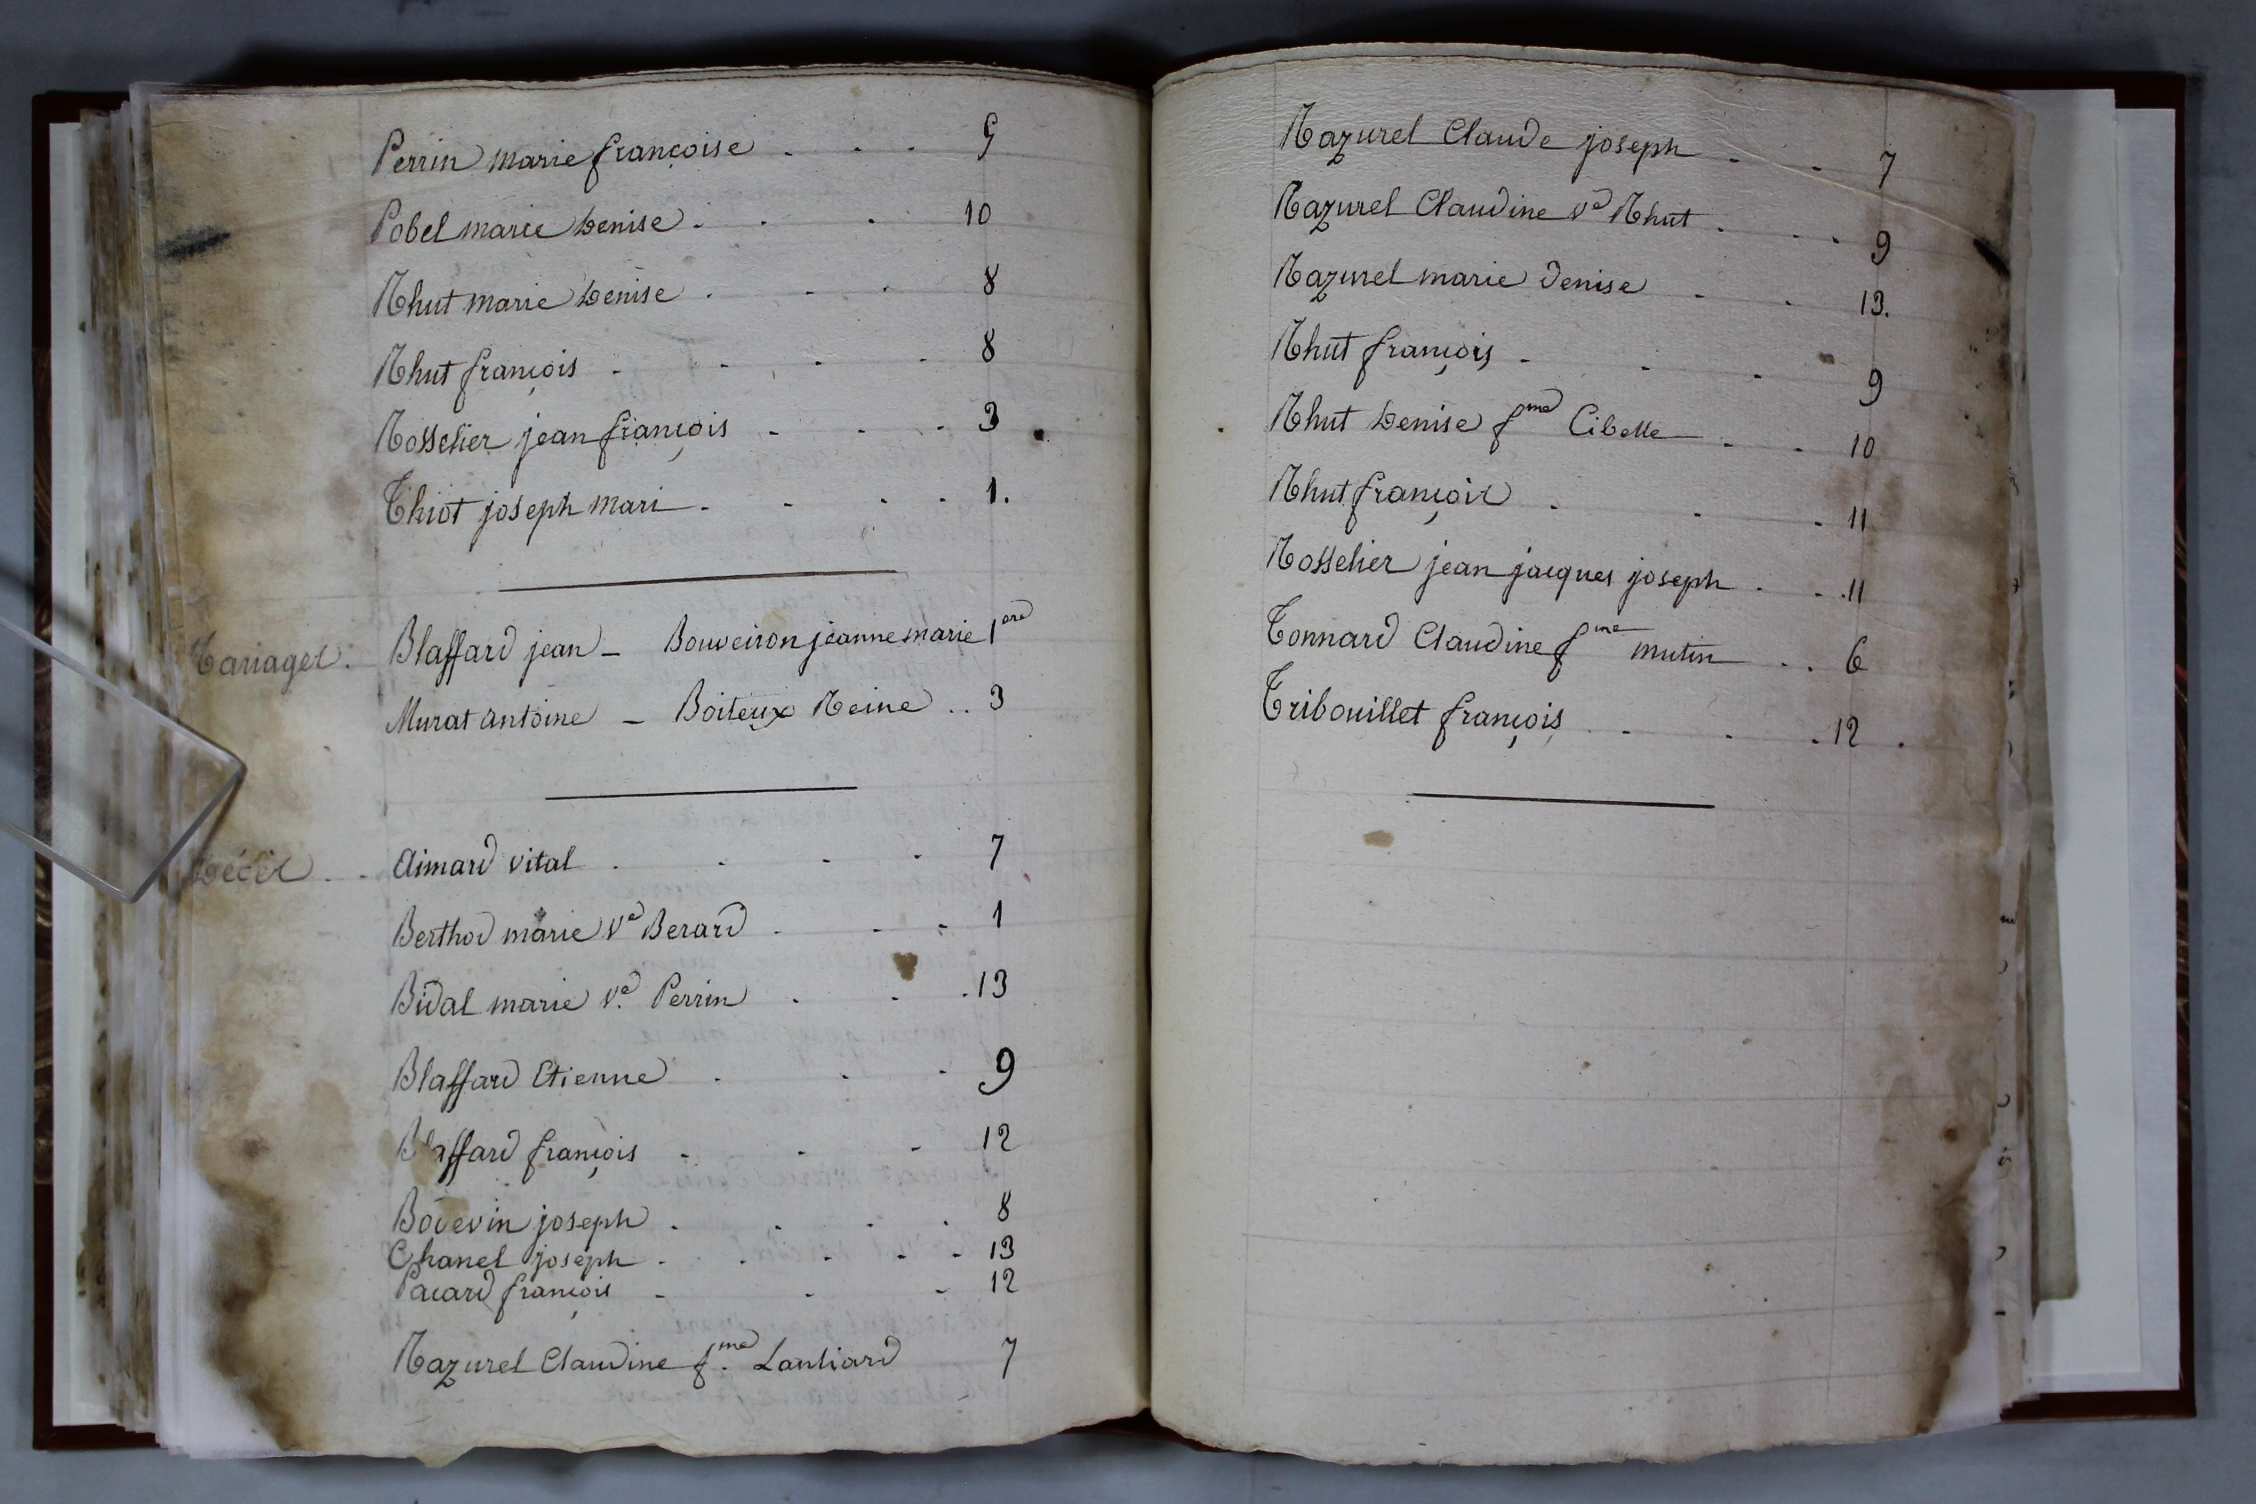 Perrin marie françoise . . . 9
Pobel marie Denise . . . 10
Rhut marie Denise . . . 8
Rhut françois . . . . 8
Rosselier jean françois . . . 3
Thiot joseph mari . . . . 1.
Mariages. Blaffard jean _ Bouveiron jeanne marie 1ere
Murat antoine _ Boiteux Reine .. 3
Décès . . Aimard vital . . . . 7
Berthod marie Ve Berard . . . 1
Bidal marie Ve. Perrin . . . 13
Blaffard Etienne . . . 9
Blaffard françois . . . 12
Boisevin joseph . . . . 8
Chanel joseph . . . . . 13
Pacard françois . . . 12
Razurel Claudine fme. Lauliard 7
Razurel Claude joseph . . 7
Razurel Claudine Ve Rhut . . . 9
Razurel marie denise . . 13.
Rhut françois . . . 9
Rhut Denise fme Cibelle . . 10
Rhut françois . . . 11
Rosselier jean jacques joseph . . . 11
Tonnard Claudine fme mutin . . 6
Tribouillet françois . . . 12 .